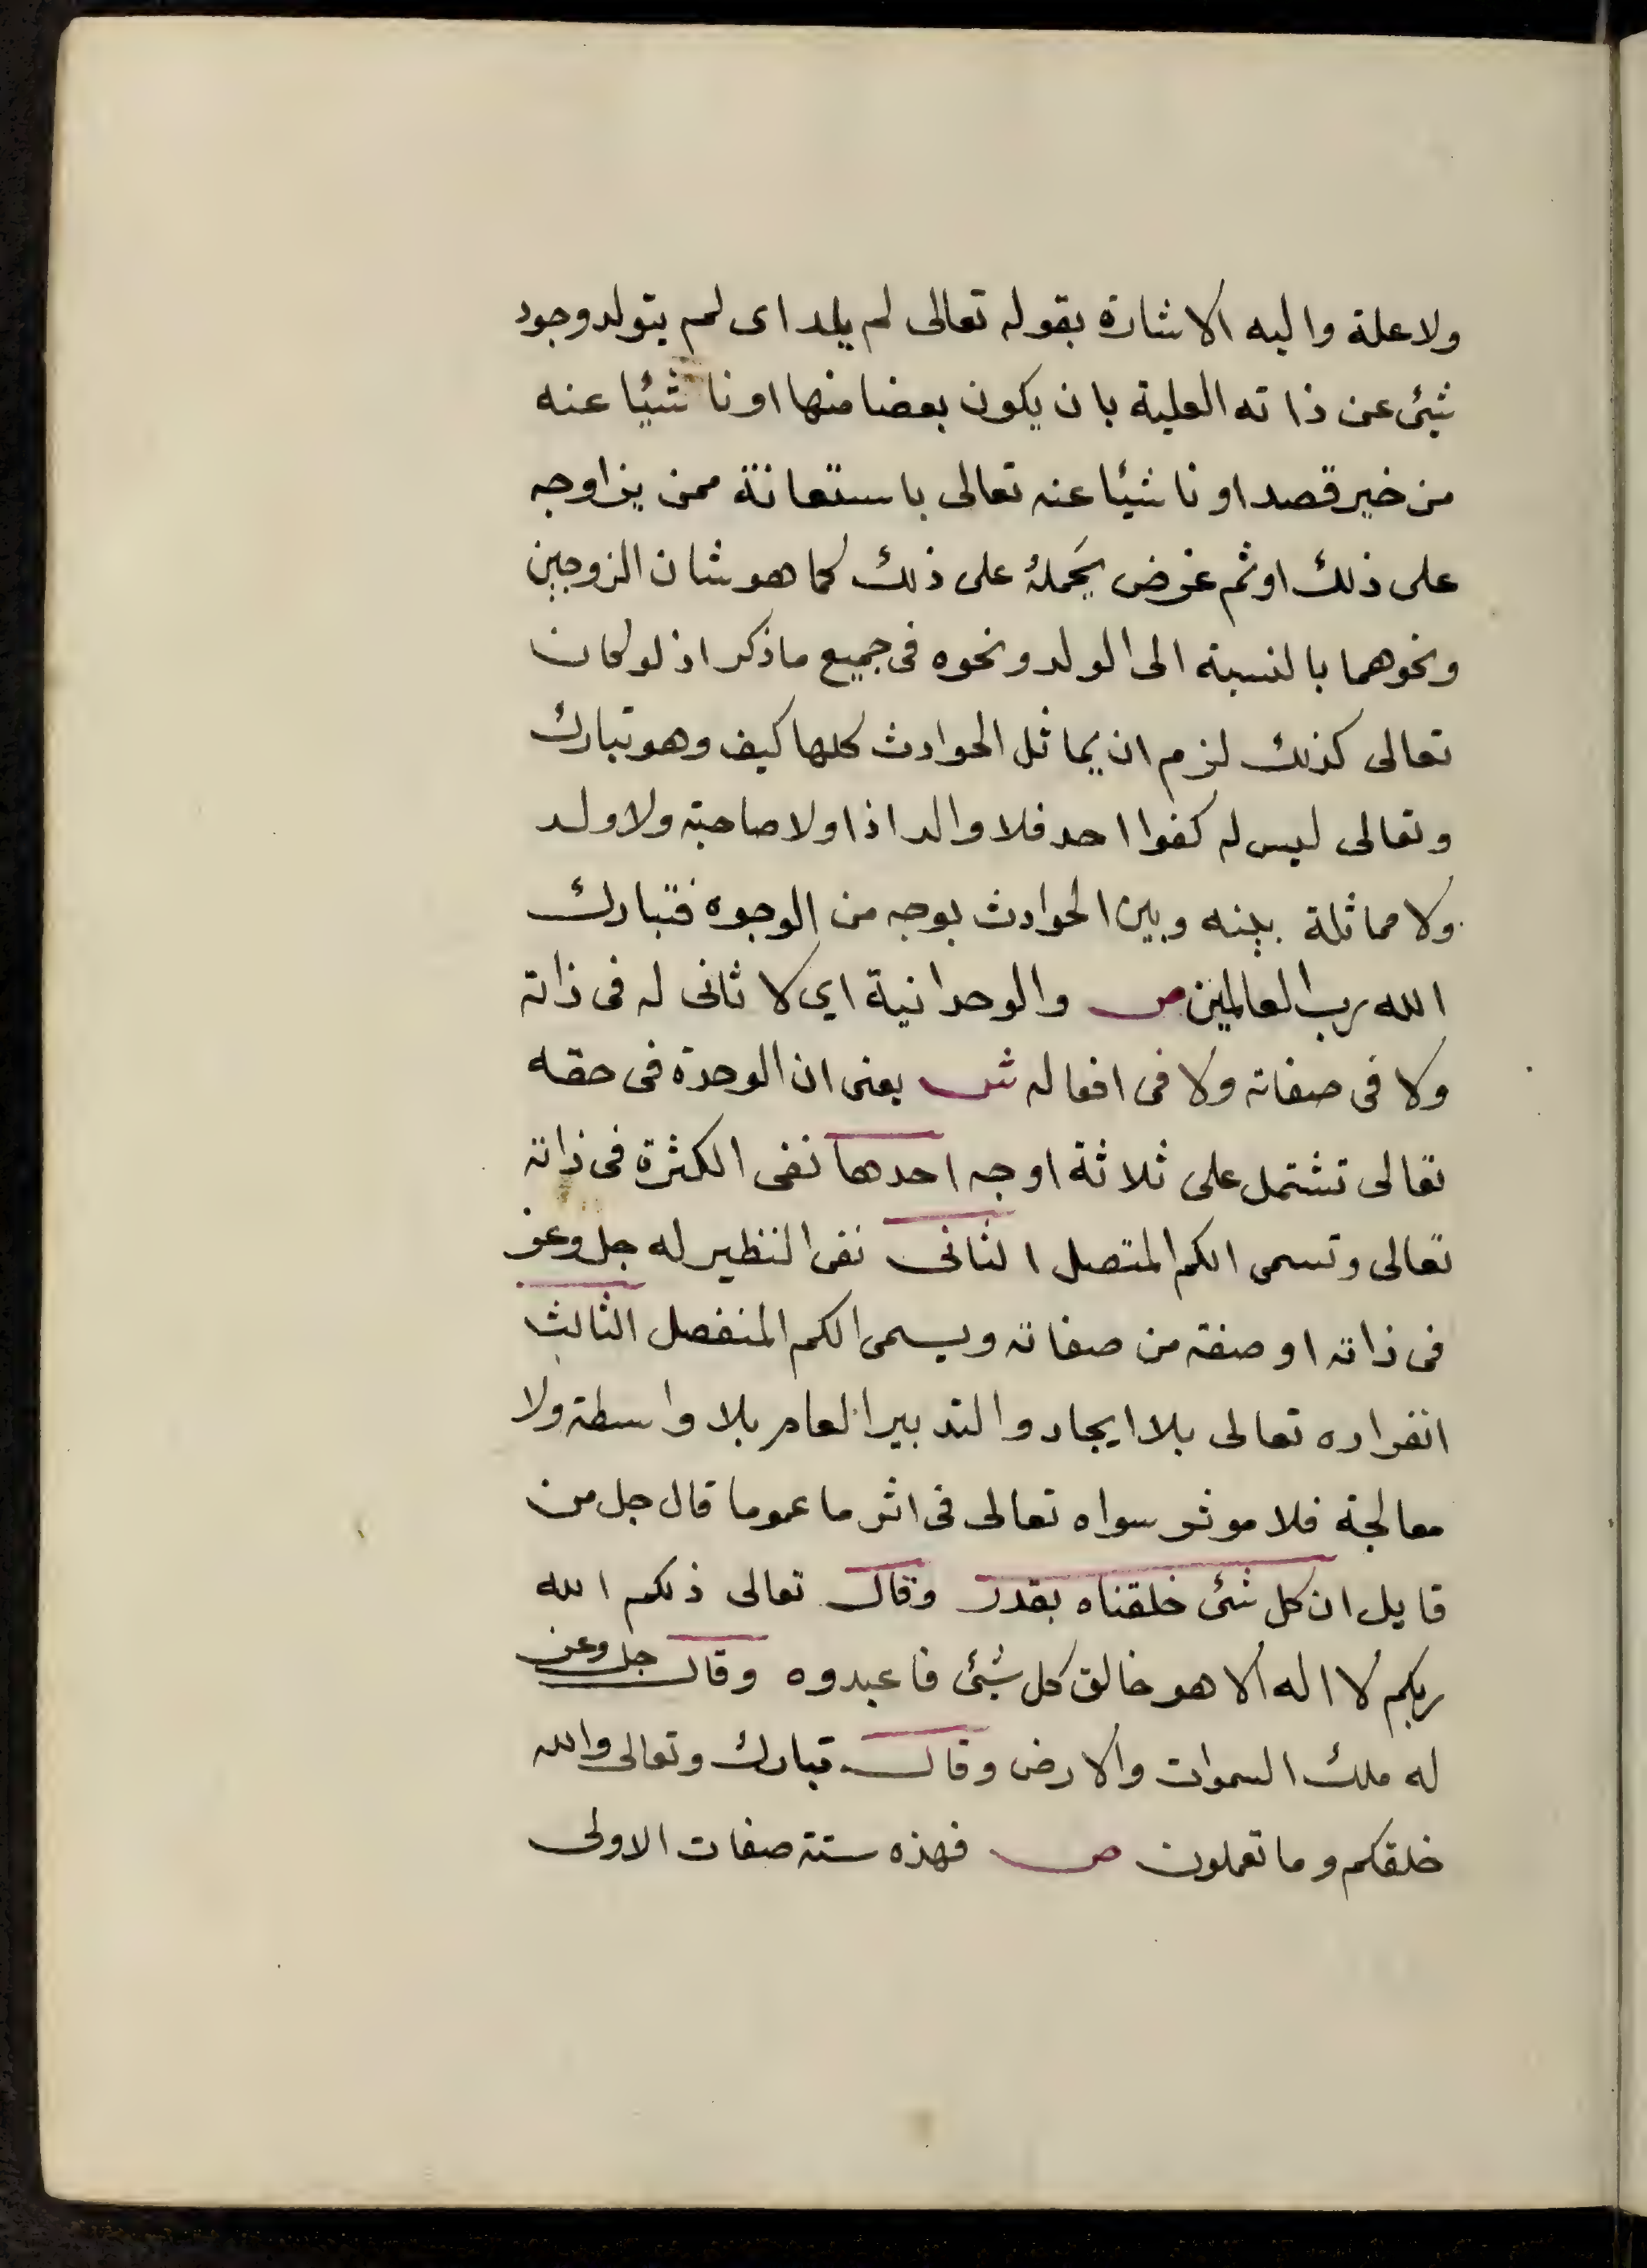 ولا علة واليه الاشارة بقوله تعالى لم يلد اى لم يتولد وجود
شئ عن ذاته العلية بان يكون بعضا منها او ناشيًا عنه
من خير قصد او ناشيًا عنه تعالى باستعانة ممن يزاوجه
على ذلك او ثم غرض يَحملهُ على ذلك كما هو شان الزوجين
ونحوهما بالنسبة الى الولد ونحوه فى جميع ما ذكر اذ لو كان
تعالى كذلك لزم ان يماثل الحوادث كلها كيف وهو تبارك
وتعالى ليس له كفوا احد فلا والد اذا ولا صاحبة ولا ولد
ولا مماثلة بينه وبين الحوادث بوجه من الوجوه فتبارك
الله رب العالمين ص والوحدانية اي لا ثانى له فى ذاته
ولا فى صفاته ولا فى افعاله ش يعنى ان الوحدة فى حقه
تعالى تشتمل على ثلاثة اوجه احدها نفى الكثرة فى ذاته
تعالى وتسمى الكم المتصل الثانى نفى النظير له جل وعز
فى ذاته او صفة من صفاته ويسمى الكم المنفصل الثالث
انفراده تعالى بلا ايجاد والتدبير العام بلا واسطة ولا
معالجة فلا موثر سواه تعالى فى اثر ما عموما قال جل من
قايل ان كل شئ خلقناه بقدر وقال تعالى ذلكم الله
ربكم لا اله الا هو خالق كل شئ فاعبدوه وقال جل وعز
له ملك السموات والارض وقال تبارك وتعالى والله
خلقكم وما تعملون ص فهذه ستة صفات الاولى